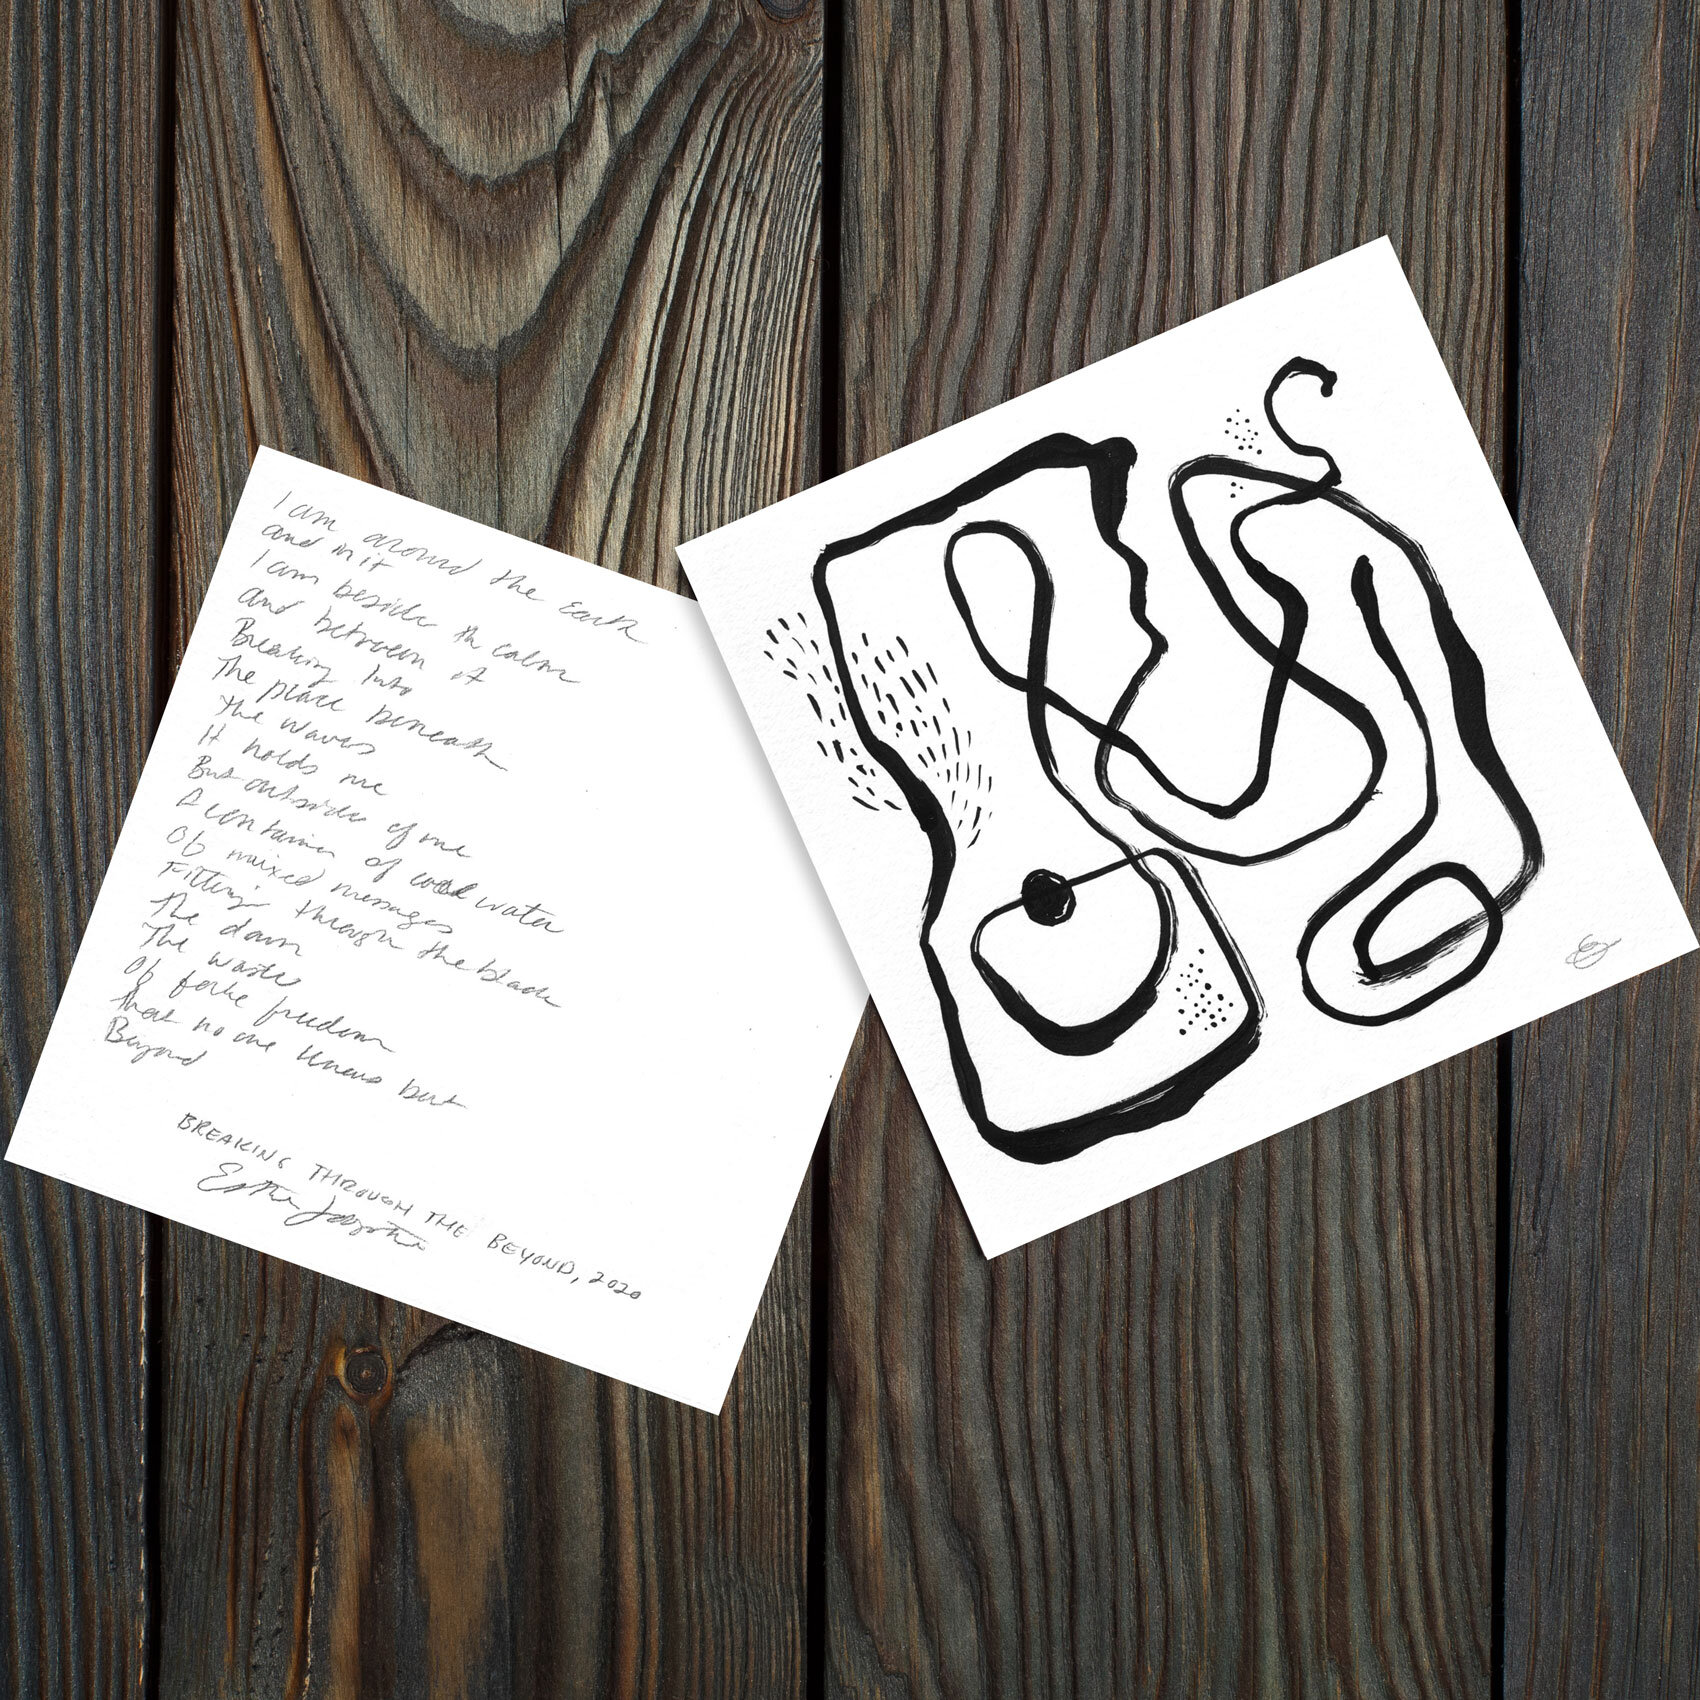 I am around the Earth
and in it
I am beside the calm
and between it
Breaking Into
The place beneath
the waves
It holds me
But outside of me
A container of cool water
Of mixed messages
Fitting through the black
The dawn
The water
Of freedom
That no one knows but
Beyond
BREAKING THROUGH THE BEYOND, 2020
Esther